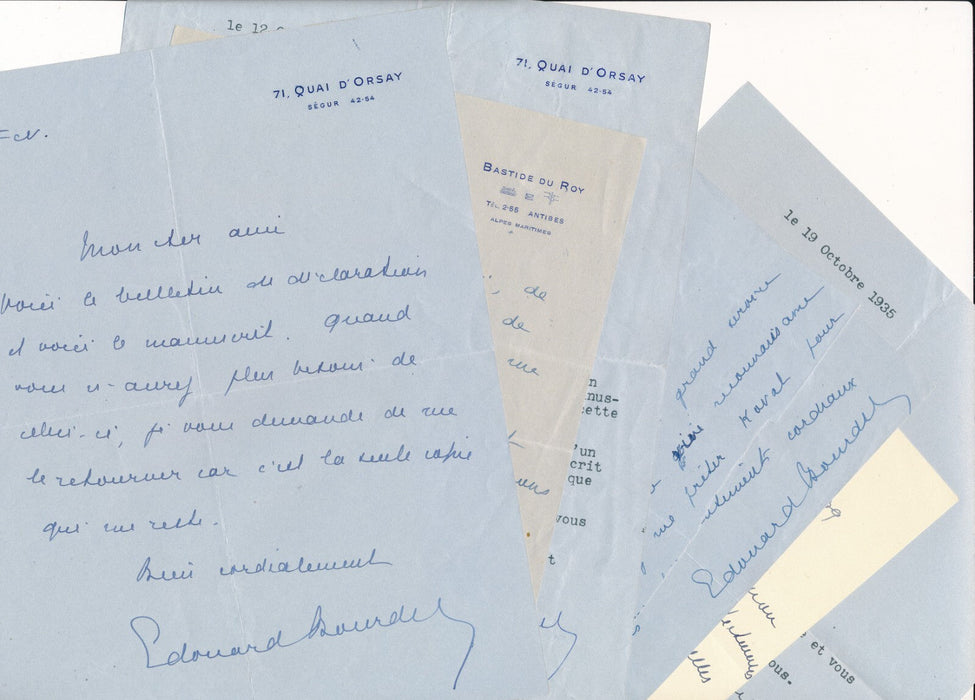 71, QUAI D'ORSAY
SÉGUR 42-54
Mon cher ami
Voici le bulletin de déclaration
et voici le manuscrit. Quand
vous n'aurez plus besoin de
celui-ci, je vous demande de me
le retourner car c'est la seule copie
qui me reste.
Bien cordialement
Edouard Bourdet
le 12
71, QUAI D'ORSAY
SÉGUR 42-54
BASTIDE DU ROY
TÉL. 2-55 ANTIBES
ALPES MARITIMES
de
de
me
n
nus-
cette
'un
crit
que
vous
t
le 19 Octobre 1935
grand service
reconnaissance
Koval pour
me prêter
cordiaux
Edouard Bourdet
elles
e et vous
ous-